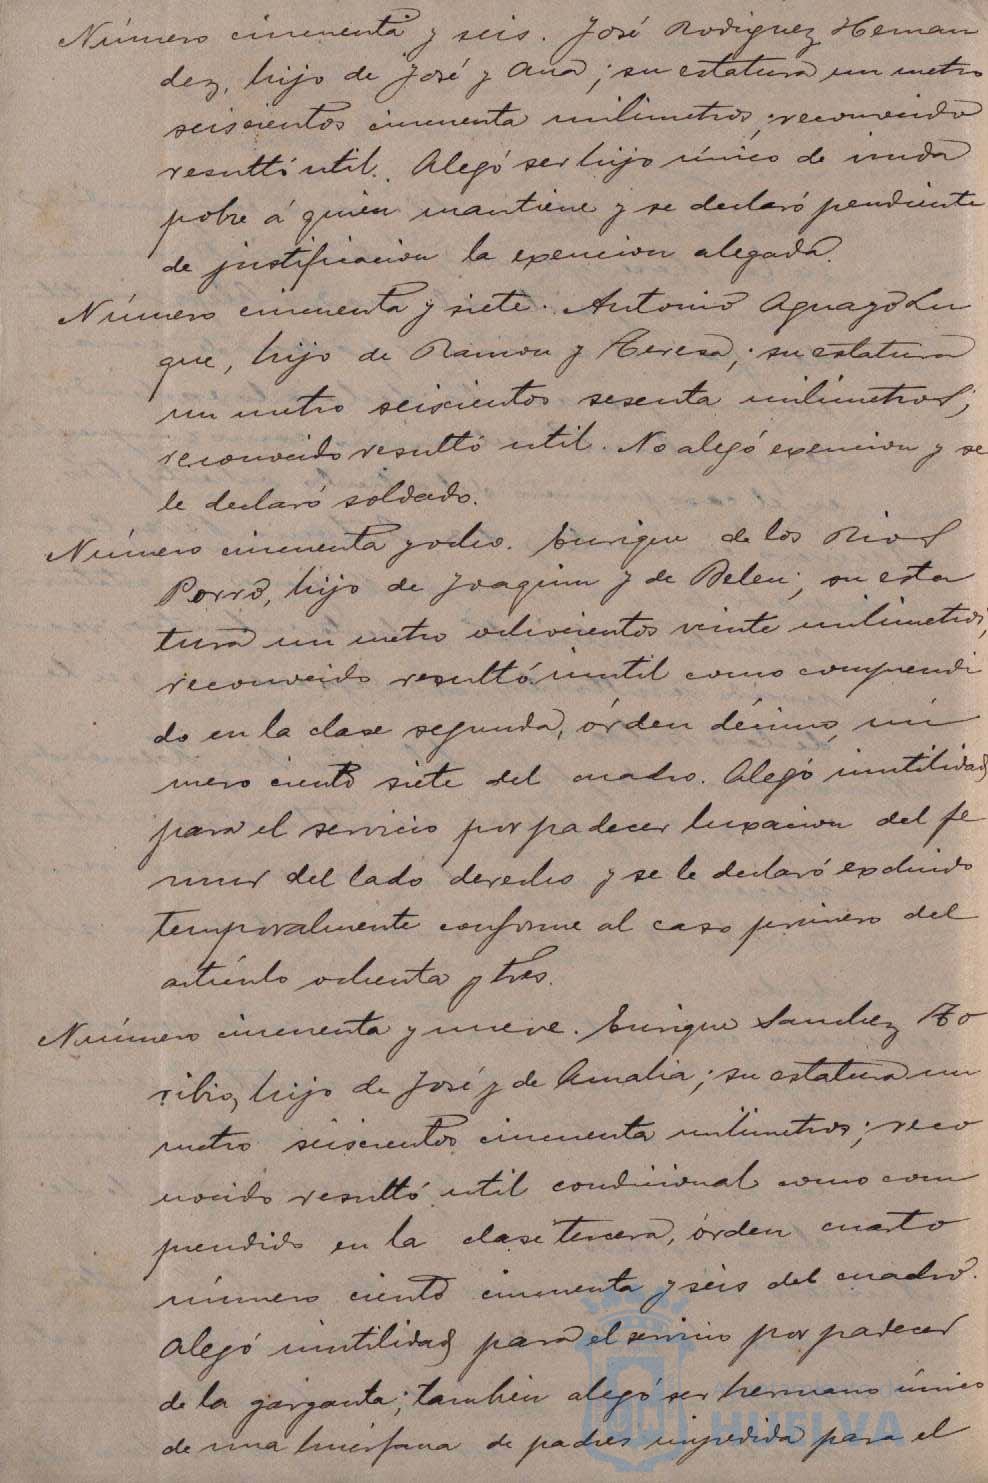 Número cincuenta y seis. José Rodriguez Hernan
dez, hijo de José y Ana; su estatura un metro
seiscientos cincuenta milimetros; reconocido
resultó util. Alegó ser hijo único de viuda
pobre á quien mantiene y se declaró pendiente
de justificacion la exencion alegada.
Número cincuenta y siete. Antonio Aguayo Lu
que, hijo de Ramon y Teresa; su estatura
un metro seiscientos sesenta milimetros;
reconocido resultó util. No alegó exencion y se
le declaró soldado.
Número cincuenta y ocho. Enrique de los Rios
Porro, hijo de Joaquin y de Belen; su esta
tura un metro ochocientos veinte milimetros;
reconocido resultó inutil como comprendi
do en la clase segunda, órden décimo, nú
mero ciento siete del cuadro. Alegó inutilidad
para el servicio por padecer luxacion del fe
mur del lado derecho y se le declaró excluido
temporalmente conforme al caso primero del
artículo ochenta y tres.
Número cincuenta y nueve. Enrique Sanchez To
ribio, hijo de José y de Amalia; su estatura un
metro seiscientos cincuenta milimetros; reco
nocido resultó util condicional como com
prendido en la clase tercera, órden cuarto
número ciento cincuenta y seis del cuadro.
Alegó inutilidad para el servicio por padecer
de la garganta; tambien alegó ser hermano único
de una huerfana de padres impedida para el
HUELVA